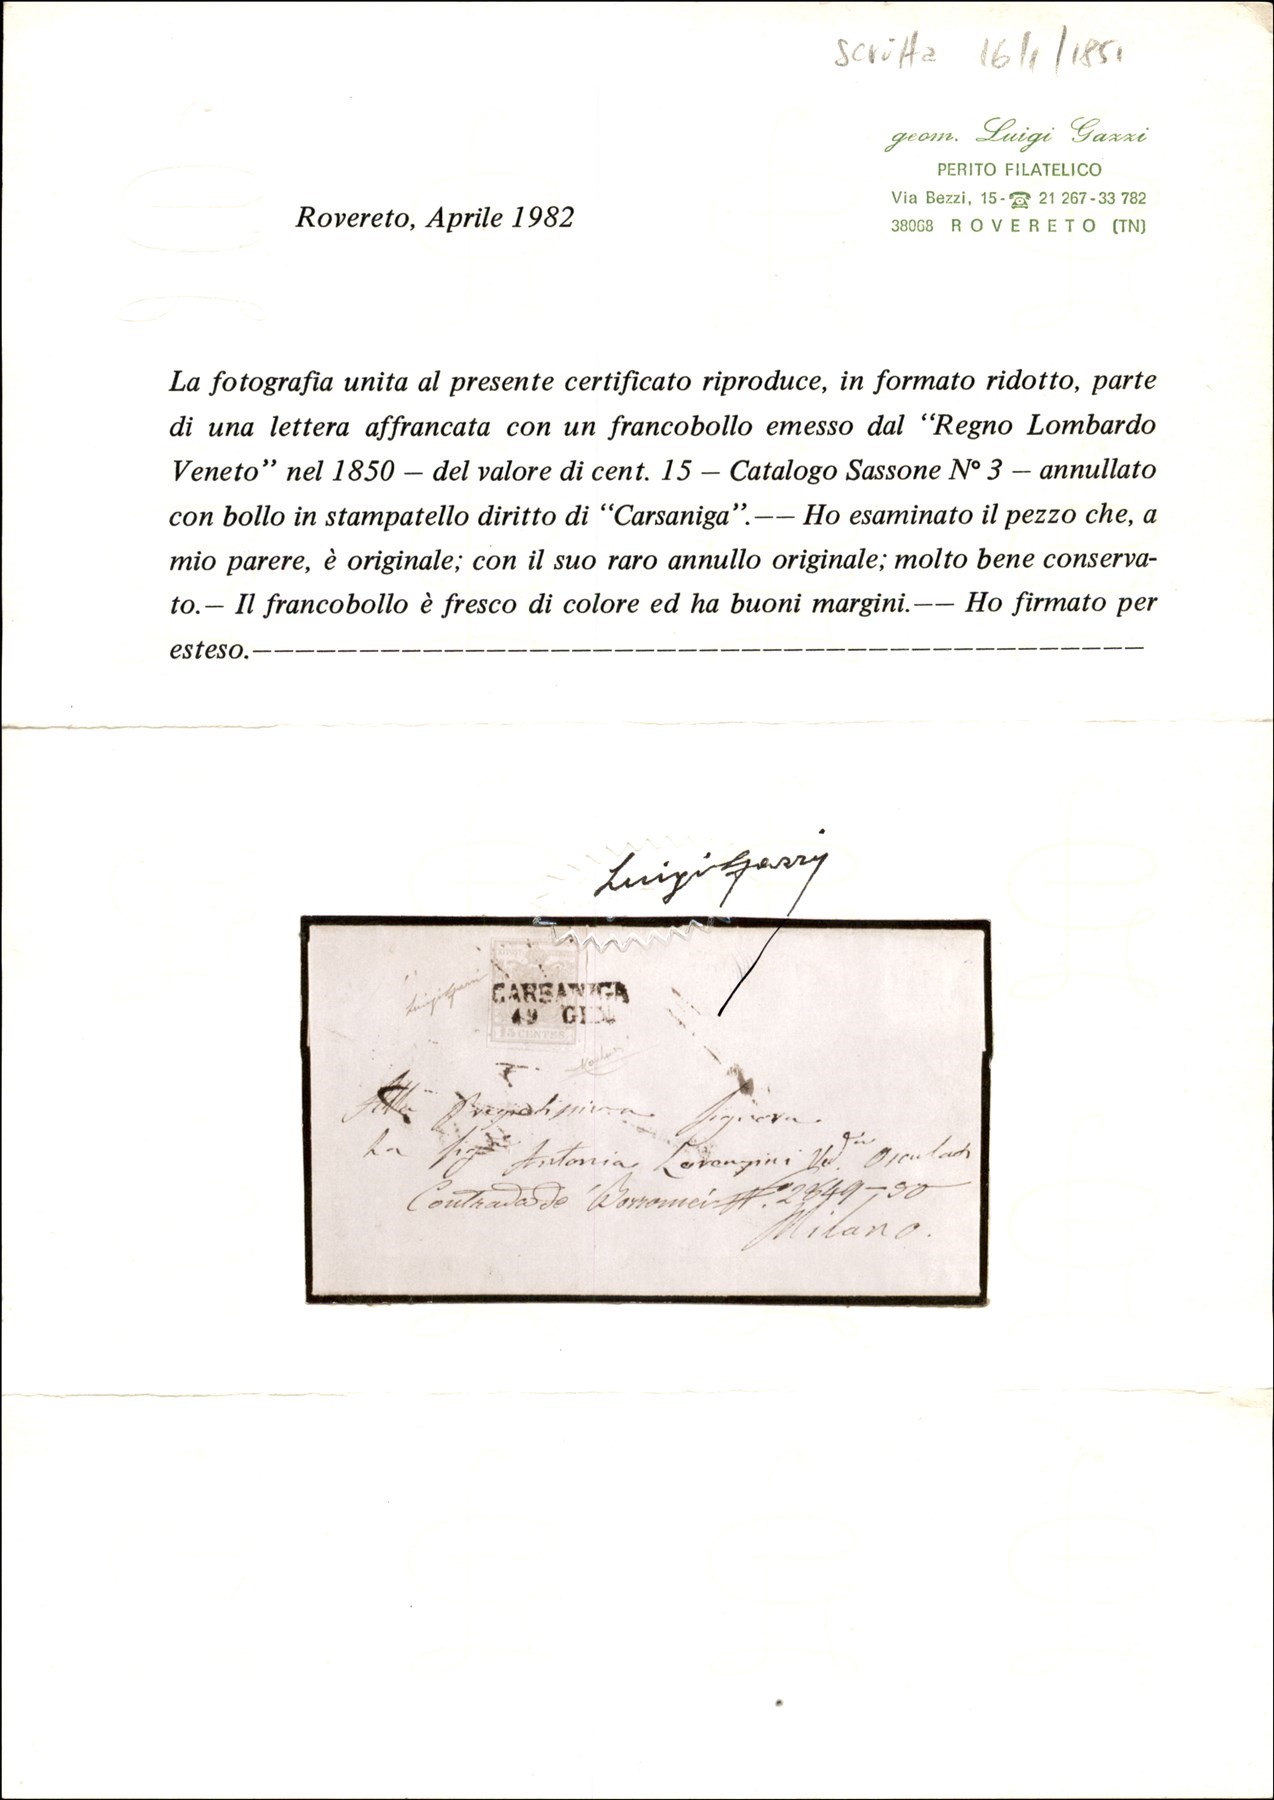 scritta 16/1/1851
geom. Luigi Gazzi
PERITO FILATELICO
Via Bezzi, 15-☎ 21 267-33 782
38068 ROVERETO (TN)
Rovereto, Aprile 1982
La fotografia unita al presente certificato riproduce, in formato ridotto, parte
di una lettera affrancata con un francobollo emesso dal “Regno Lombardo
Veneto” nel 1850 — del valore di cent. 15 — Catalogo Sassone N° 3 — annullato
con bollo in stampatello diritto di “Carsaniga”.—— Ho esaminato il pezzo che, a
mio parere, è originale; con il suo raro annullo originale; molto bene conserva-
to.— Il francobollo è fresco di colore ed ha buoni margini.—— Ho firmato per
esteso.—————————————————————————————————————
Luigi Gazzi
Luigi Gazzi
CARSANIGA
19 GEN
15 CENTES.
Alla Pregiatissima Signora
La Sigra Antonia Lorenzini Ved.
Contrada de Borromei N.° 2849-50
Milano.